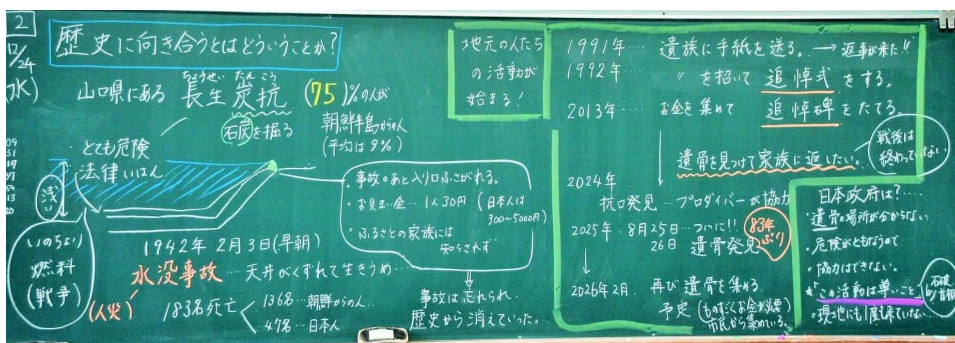 2
12/24
(水)
歴史に向き合うとはどういうことか?
山口県にある 長生炭抗 (75)%の人が
ちょうせい たんこう
朝鮮半島からの人
(平均は9%)
石炭を掘る
とても危険
法律いはん
浅い
いのちより
燃料
(戦争)
1942年 2月3日(早朝)
水没事故…天井がくずれて生きうめ…
(人災)
183名死亡
136名…朝鮮からの人
47名…日本人
・事故のあと入り口ふさがれる。
・お見まい金…1人30円(日本人は
300~5000円)
・ふるさとの家族には
知らされず
事故は忘れられ
歴史から消えていった。
地元の人たち
の活動が
始まる!
1991年… 遺族に手紙を送る。→返事が来た!!
1992年… 〃 を招いて 追悼式 をする。
2013年… お金を集めて 追悼碑 をたてる。
遺骨を見つけて家族に返したい。
戦後は
終わっていない
2024年
抗口発見…プロダイバーが協力
2025年 8月25日…ついに!!
26日 遺骨発見
83年ぶり
2026年2月 再び遺骨を集める
予定
市民から集めている。
日本政府は?…
・遺骨の場所が分からない
・危険がともなうので
・協力はできない。
★「この活動は尊いこと」
・現地にも1度も来ていない…